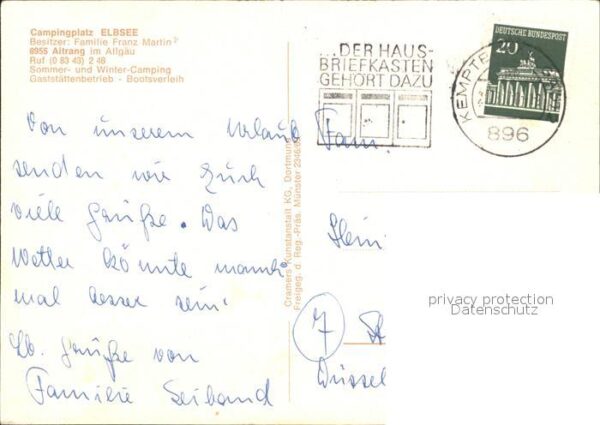 Campingplatz ELBSEE
Besitzer: Familie Franz Martin
8955 Aitrang im Allgäu
Ruf (0 83 43) 2 48
Sommer- und Winter-Camping
Gaststättenbetrieb - Bootsverleih
...DER HAUS-
BRIEFKASTEN
GEHÖRT DAZU
DEUTSCHE BUNDESPOST
20
KEMPTE
896
Von unserem Urlaub
senden wir Euch
viele Grüße. Das
Wetter könnte manch-
mal besser sein.
Lb. Grüße von
Familie Seiband
Cramers Kunstanstalt KG, Dortmund
Freigeg. d. Reg.-Präs. Münster
Fam.
7
Düssel
privacy protection
Datenschutz